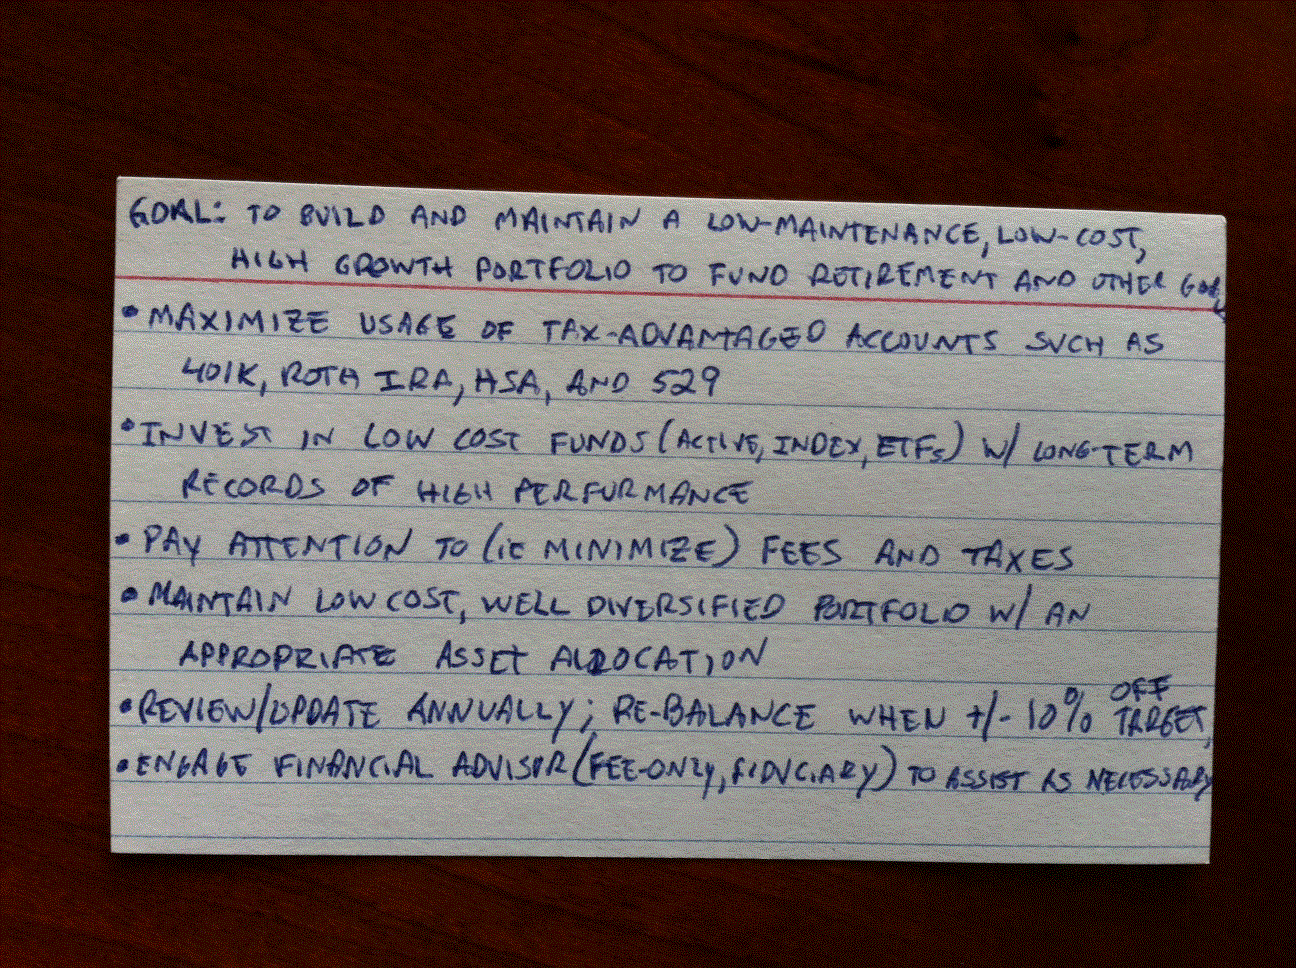 GOAL: TO BUILD AND MAINTAIN A LOW-MAINTENANCE, LOW-COST,
HIGH GROWTH PORTFOLIO TO FUND RETIREMENT AND OTHER GOALS
• MAXIMIZE USAGE OF TAX-ADVANTAGED ACCOUNTS SUCH AS
401K, ROTH IRA, HSA, AND 529
• INVEST IN LOW COST FUNDS (ACTIVE, INDEX, ETFs) W/ LONG-TERM
RECORDS OF HIGH PERFORMANCE
• PAY ATTENTION TO (IE MINIMIZE) FEES AND TAXES
• MAINTAIN LOW COST, WELL DIVERSIFIED PORTFOLIO W/ AN
APPROPRIATE ASSET ALLOCATION
• REVIEW/UPDATE ANNUALLY; RE-BALANCE WHEN +/- 10% OFF TARGET,
• ENGAGE FINANCIAL ADVISOR (FEE-ONLY, FIDUCIARY) TO ASSIST AS NECESSARY